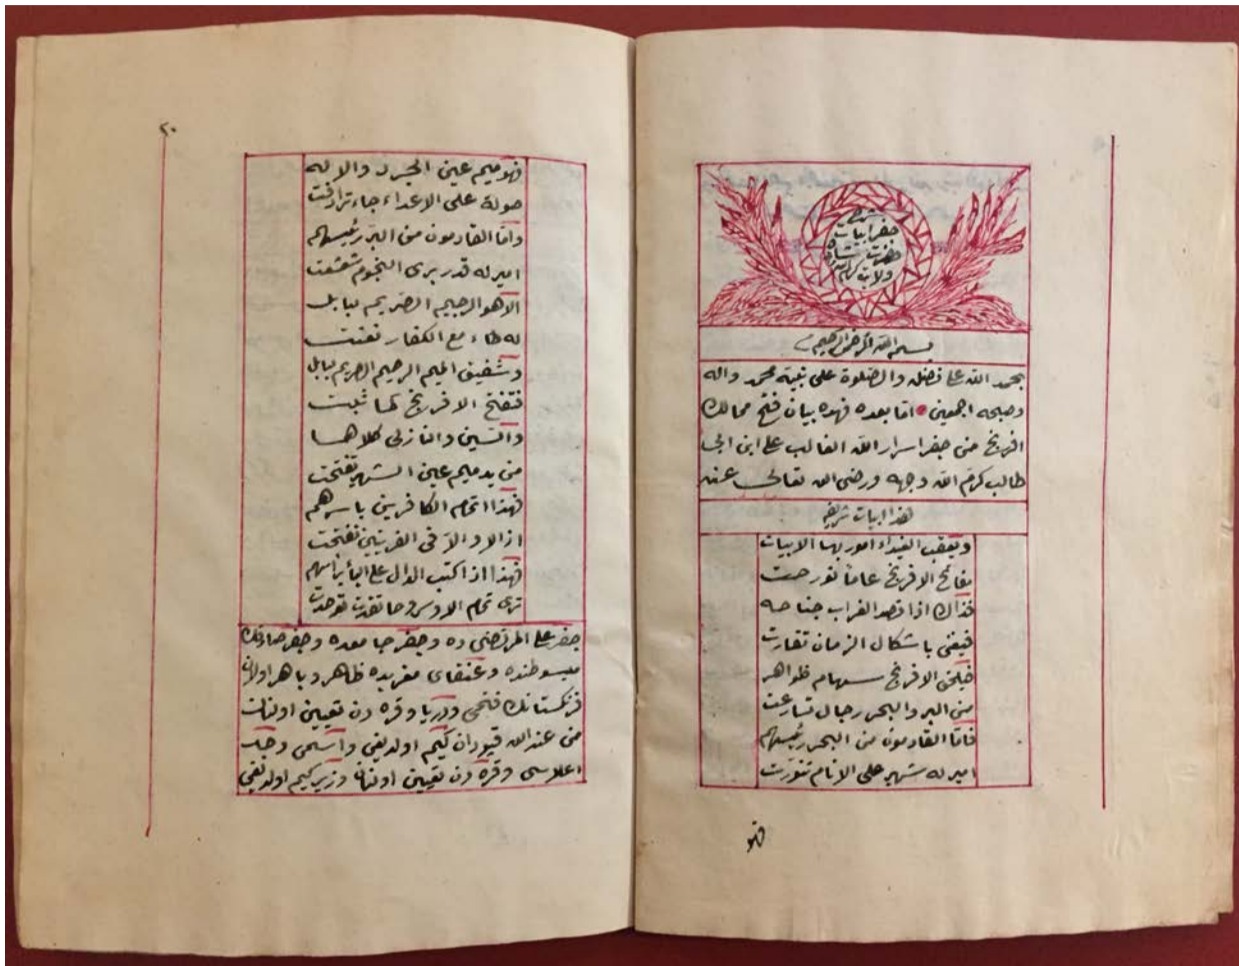 جفر ابيات
حضرت شاه
ولايت كرم الله
بسم الله الرحمن الرحيم
بحمد الله على فضله والصلوة على نبيه محمد واله
وصحبه اجمعين اما بعده فهذه بيان فتح ممالك
افرنج من جفر اسرار الله الغالب على ابن ابى
طالب كرم الله وجهه ورضى الله تعالى عنه
هذا ابيات شريفه
ويعقب الفيداء امور بها الابيات
مفاتح الافرنج عاماً تورخت
فذاك اذا قصد الغراب جناحه
فيفنى باشكال الزمان تقارت
فيلحق الافرنج سهام ظواهر
من البر والبحر رجال تسارعت
فاما القادمون من البحر رئيسهم
امير له شهير على الانام تنورت
فهو
٢٠
فهو ميم عين الجرد والاله
صولة على الاعداء جاء ترادفت
واما القادمون من البر رئيسهم
امير له قدر يرى النجوم شعشعت
الا هو الرجيم الصريم ببابل
له طاء مع الكفار تفنت
وشفيق الميم الرحيم الصريم ببابل
فتفتح الافرنج لها ثبت
والسين والنازلى كلاهما
من يد ميم عين الشهير تفتحت
فهذا اتمام الكافرين باسرهم
اذ الا والا فى القريتين تفتحت
فهذا اذ اكتب الدال على الباء براسهم
ترى تمام الاوس وما تقدت توحدت
جفر على المرتضى ده وجفر جامعه ده وجفر صادقك
مبسوطنده وعنقاى مغربده ظاهر وباهر اولان
فرنكستانك فتحى ودريا وقره دن تعيين اولنان
من عند الله قپودان كيم اولديغى واسمى وجد
اعلاسى وقره دن تعيين اولنان وزير كيم اولديغى